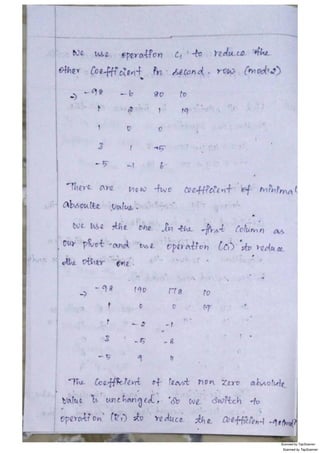 We use operation C₁ to reduce the
other Coefficient in second row (mod 2)
→ -98 -6 80 10
1 2 1 19
1 0 0
3 1 -5
-5 -1 6
There are now two coefficient of minimal
absoulte value.
We use the one in the first Column as
our pivot and use operation (C₁) to reduce
the other one.
→ -98 190 178 10
1 0 0 19
1 -2 -1
3 -5 -8
-5 9 11
The Coefficient of least non zero absolute
value is unchanged. So we switch to
operation to reduce the Coefficient
Scanned by TapScanner
Scanned by TapScanner